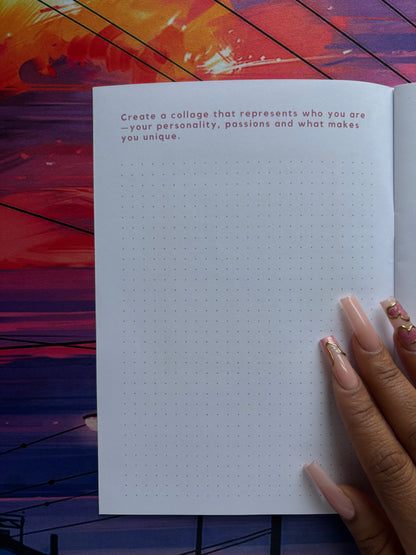 Create a collage that represents who you are
—your personality, passions and what makes
you unique.